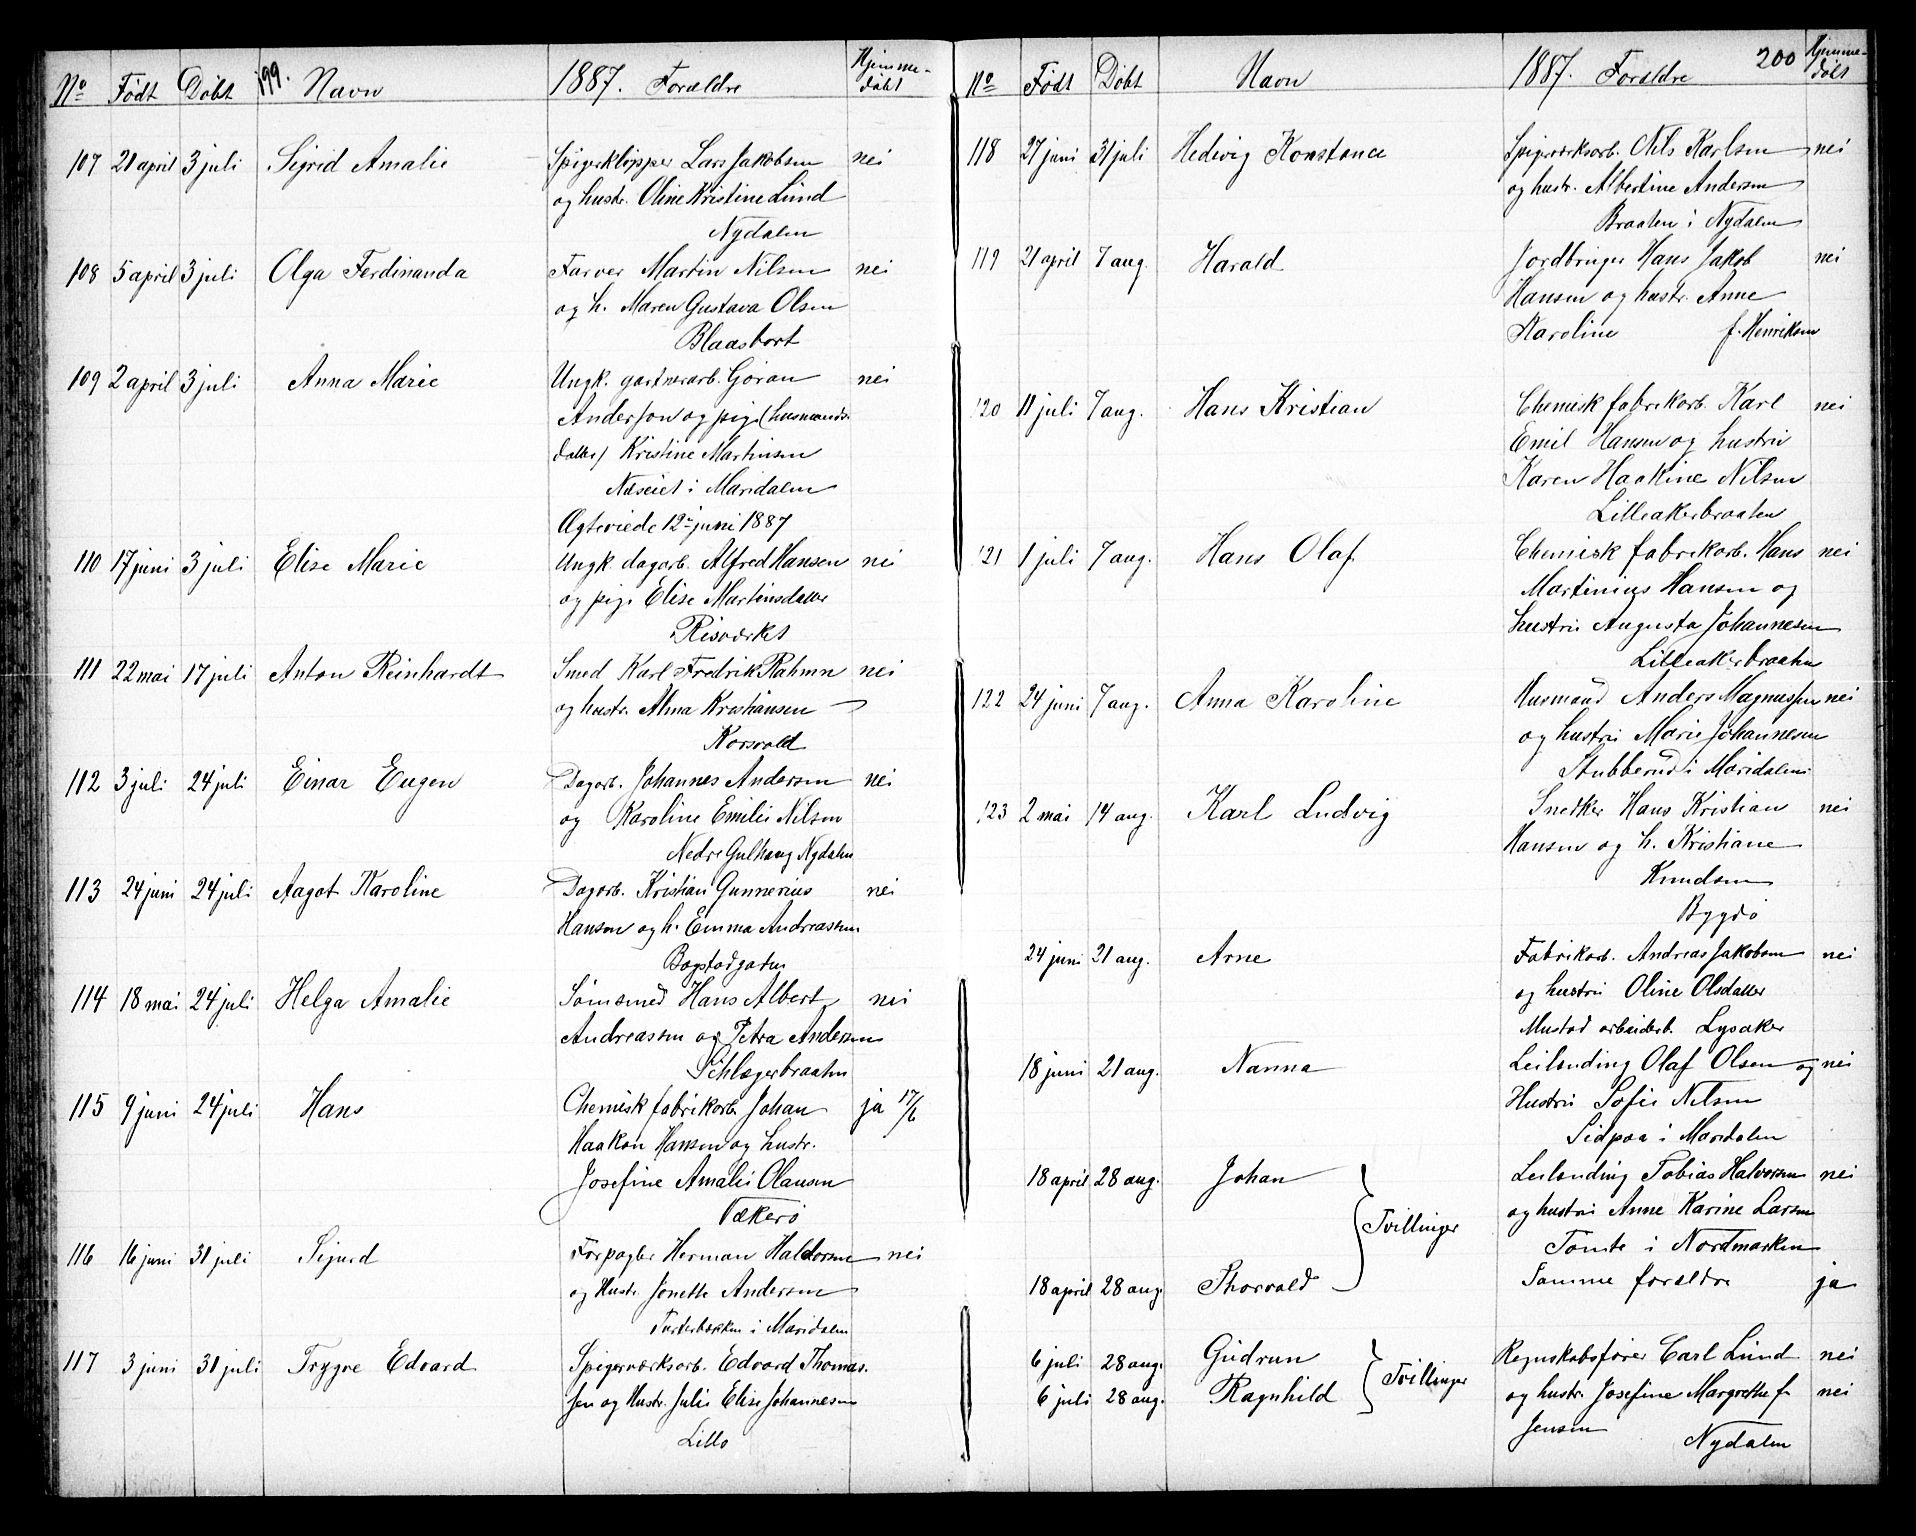 No Født Døbt 199. Navn 1887. Forældre Hjemme-døbt
107 21 april 3 juli Sigrid Amalie Spigerklipper Lars Jakobsen nei
og hustr. Oline Kristine Lund
Nydalen
108 5 april 3 juli Olga Ferdinanda Farver Martin Nilsen nei
og h. Maren Gustava Olsen
Blaasbort
109 2 april 3 juli Anna Marie Ungk. gartnerarb. Göran nei
Anderson og pige (husmands-
datter) Kristine Martinsen
Næseiet i Maridalen
Ægteviede 12te juni 1887
110 17 juni 3 juli Elise Marie Ungk. dagarb. Alfred Hansen nei
og pige Elise Martinsdatter
Risværket
111 22 mai 17 juli Anton Reinhardt Smed Karl Fredrik Rahmn nei
og hustr. Alma Kristiansen
Korsvold
112 3 juli 24 juli Einar Eugen Dagarb. Johannes Andersen nei
og Karoline Emilie Nilsen
Nedre Gulhaug Nydalen
113 24 juni 24 juli Aagot Karoline Dagarb. Kristian Gunnerius nei
Hansen og h. Emma Andreassen
Bogstadgaten
114 18 mai 24 juli Helga Amalie Sømsmed Hans Albert nei
Andreassen og Petra Andersen
Schlægerbraaten
115 9 juni 24 juli Hans Chemisk fabrikarb. Johan ja 17/6
Haakon Hansen og hustr.
Josefine Amalie Olausen
Vækerø
116 16 juni 31 juli Sigurd Forpagter Herman Haldorsen nei
og Hustr. Jonette Andersen
Turterbækken i Maridalen
117 3 juni 31 juli Trygve Edvard Spigerværksarb. Edvard Thomas-
sen og Hustr. Julie Elise Johannesen
Lillo
No Født Døbt Navn 1887. Forældre 200 Hjemme-døbt
118 27 juni 31 juli Hedvig Konstance Spigerværksarb. Nils Karlsen nei
og hustr. Albertine Andersen
Braaten i Nydalen
119 21 april 7 aug. Harald Jordbruger Hans Jakob nei
Hansen og hustr. Anne
Karoline f. Henriksen
120 11 juli 7 aug. Hans Kristian Chemisk fabrikarb. Karl nei
Emil Hansen og hustru
Karen Haakine Nilsen
Lilleakerbraaten
121 1 juli 7 aug. Hans Olaf Chemisk fabrikarb. Hans nei
Martinius Hansen og
hustru Augusta Johannesen
Lilleakerbraaten
122 24 juni 7 aug. Anna Karoline Husmand Anders Magnussen nei
og hustru Marie Johannesen
Stubberud i Maridalen
123 2 mai 14 aug. Karl Ludvig Snedker Hans Kristian nei
Hansen og h. Kristiane
Knudsen
Bygdø
24 juni 21 aug. Arne Fabrikarb. Andreas Jakobsen nei
og hustru Oline Olsdatter
Mustad arbeiderb. Lysaker
18 juni 21 aug. Nanna Leilending Olaf Olsen og nei
Hustru Sofie Nilsen
Sidpaa i Maridalen
18 april 28 aug. Johan Leilending Tobias Halvorsen nei
og hustru Anne Karine Larsen
Tvillinger
Tomte i Nordmarken
18 april 28 aug. Thorvald Samme forældre ja
6 juli 28 aug. Gudrun Regnskabsfører Carl Lund nei
6 juli 28 aug. Ragnhild Tvillinger og hustr. Josefine Margrethe f. nei
Jensen
Nydalen